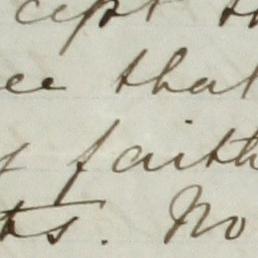 cept th
ee that
y faith
ts. No